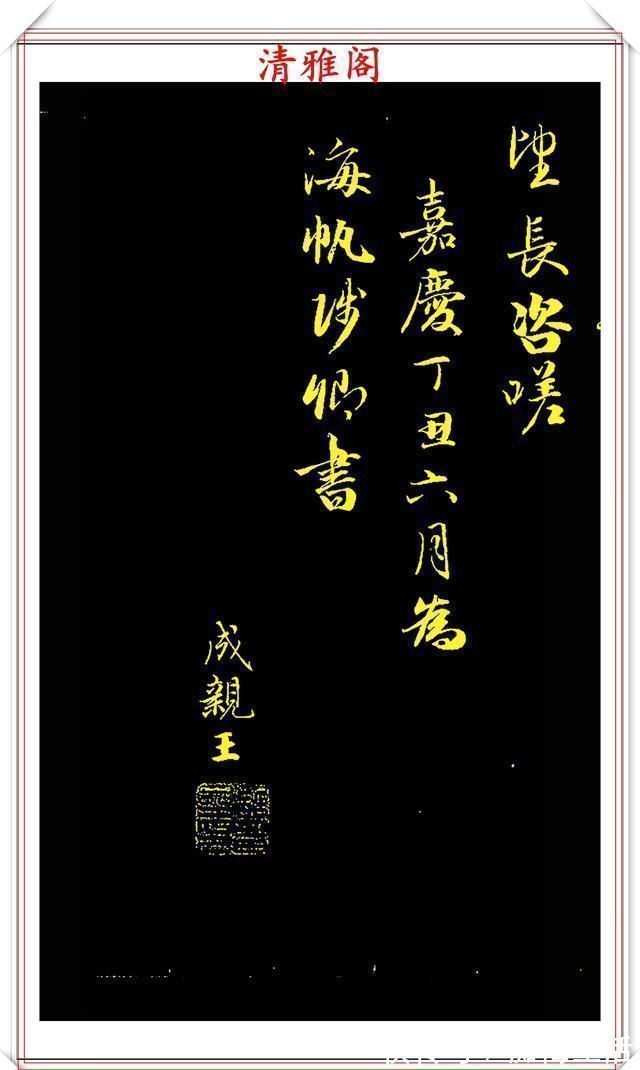 清雅阁
望長咨嗟
嘉慶丁丑六月為
海帆侍御書
成親王